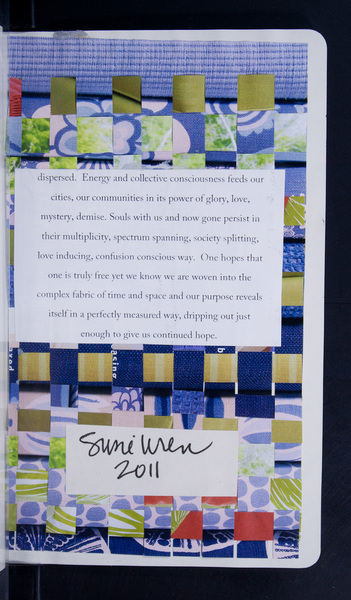 dispersed. Energy and collective consciousness feeds our
cities, our communities in its power of glory, love,
mystery, demise. Souls with us and now gone persist in
their multiplicity, spectrum spanning, society splitting,
love inducing, confusion conscious way. One hopes that
one is truly free yet we know we are woven into the
complex fabric of time and space and our purpose reveals
itself in a perfectly measured way, dripping out just
enough to give us continued hope.
Suzi Wren
2011